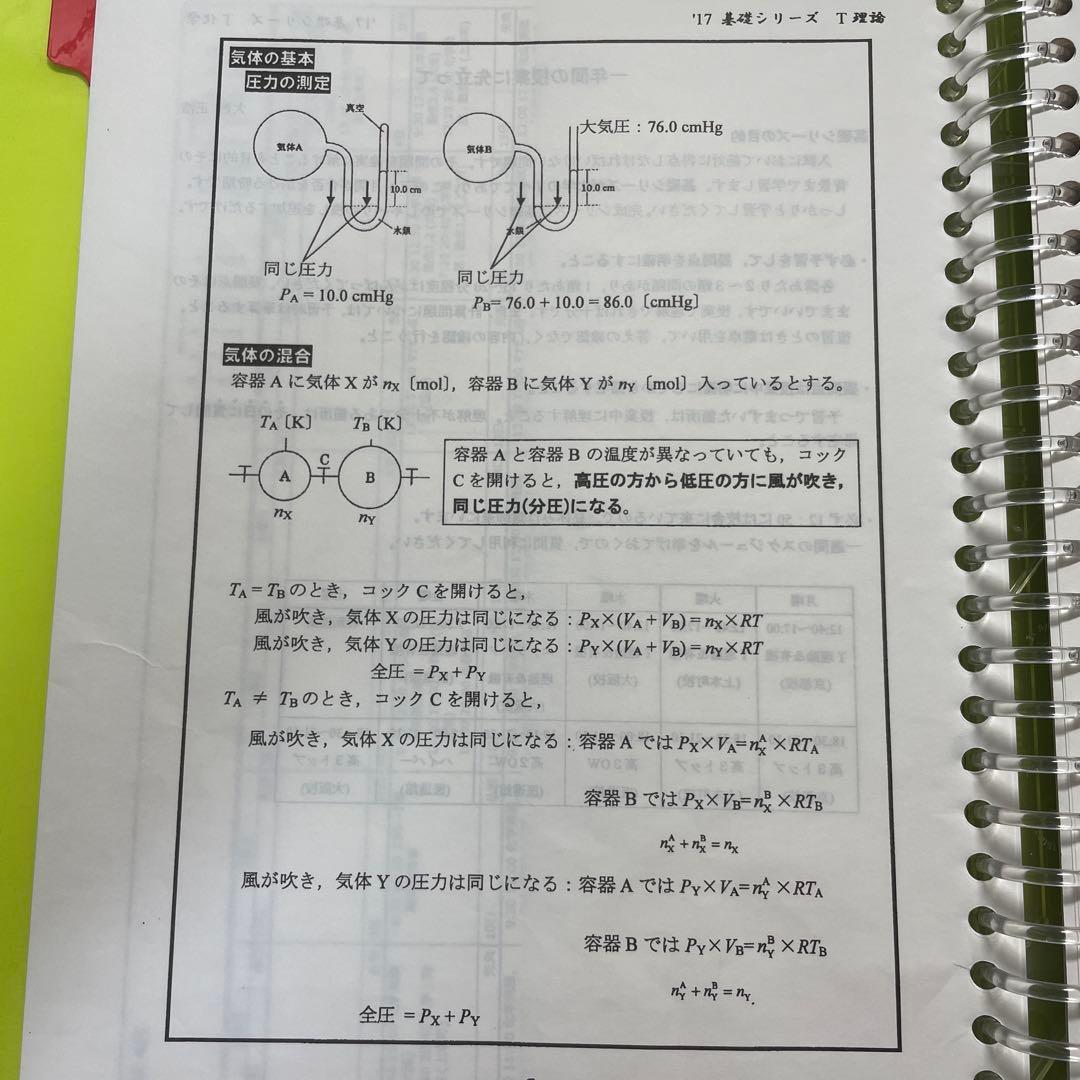 '17 基礎シリーズ T 理論
気体の基本
圧力の測定
真空
気体A
10.0 cm
水銀
同じ圧力
P_A = 10.0 cmHg
大気圧：76.0 cmHg
気体B
10.0 cm
水銀
同じ圧力
P_B= 76.0 + 10.0 = 86.0〔cmHg〕
気体の混合
容器 A に気体 X が n_X〔mol〕，容器 B に気体 Y が n_Y〔mol〕入っているとする。
T_A〔K〕 T_B〔K〕
C
A B
n_X n_Y
容器 A と容器 B の温度が異なっていても，コック
C を開けると，高圧の方から低圧の方に風が吹き，
同じ圧力(分圧)になる。
T_A = T_B のとき，コック C を開けると，
風が吹き，気体 X の圧力は同じになる：P_X×(V_A + V_B) = n_X×RT
風が吹き，気体 Y の圧力は同じになる：P_Y×(V_A + V_B) = n_Y×RT
全圧 = P_X + P_Y
T_A ≠ T_B のとき，コック C を開けると，
風が吹き，気体 X の圧力は同じになる：容器 A では P_X×V_A=n_X^A×RT_A
容器 B では P_X×V_B=n_X^B×RT_B
n_X^A + n_X^B = n_X
風が吹き，気体 Y の圧力は同じになる：容器 A では P_Y×V_A=n_Y^A×RT_A
容器 B では P_Y×V_B=n_Y^B×RT_B
n_Y^A + n_Y^B = n_Y.
全圧 = P_X + P_Y